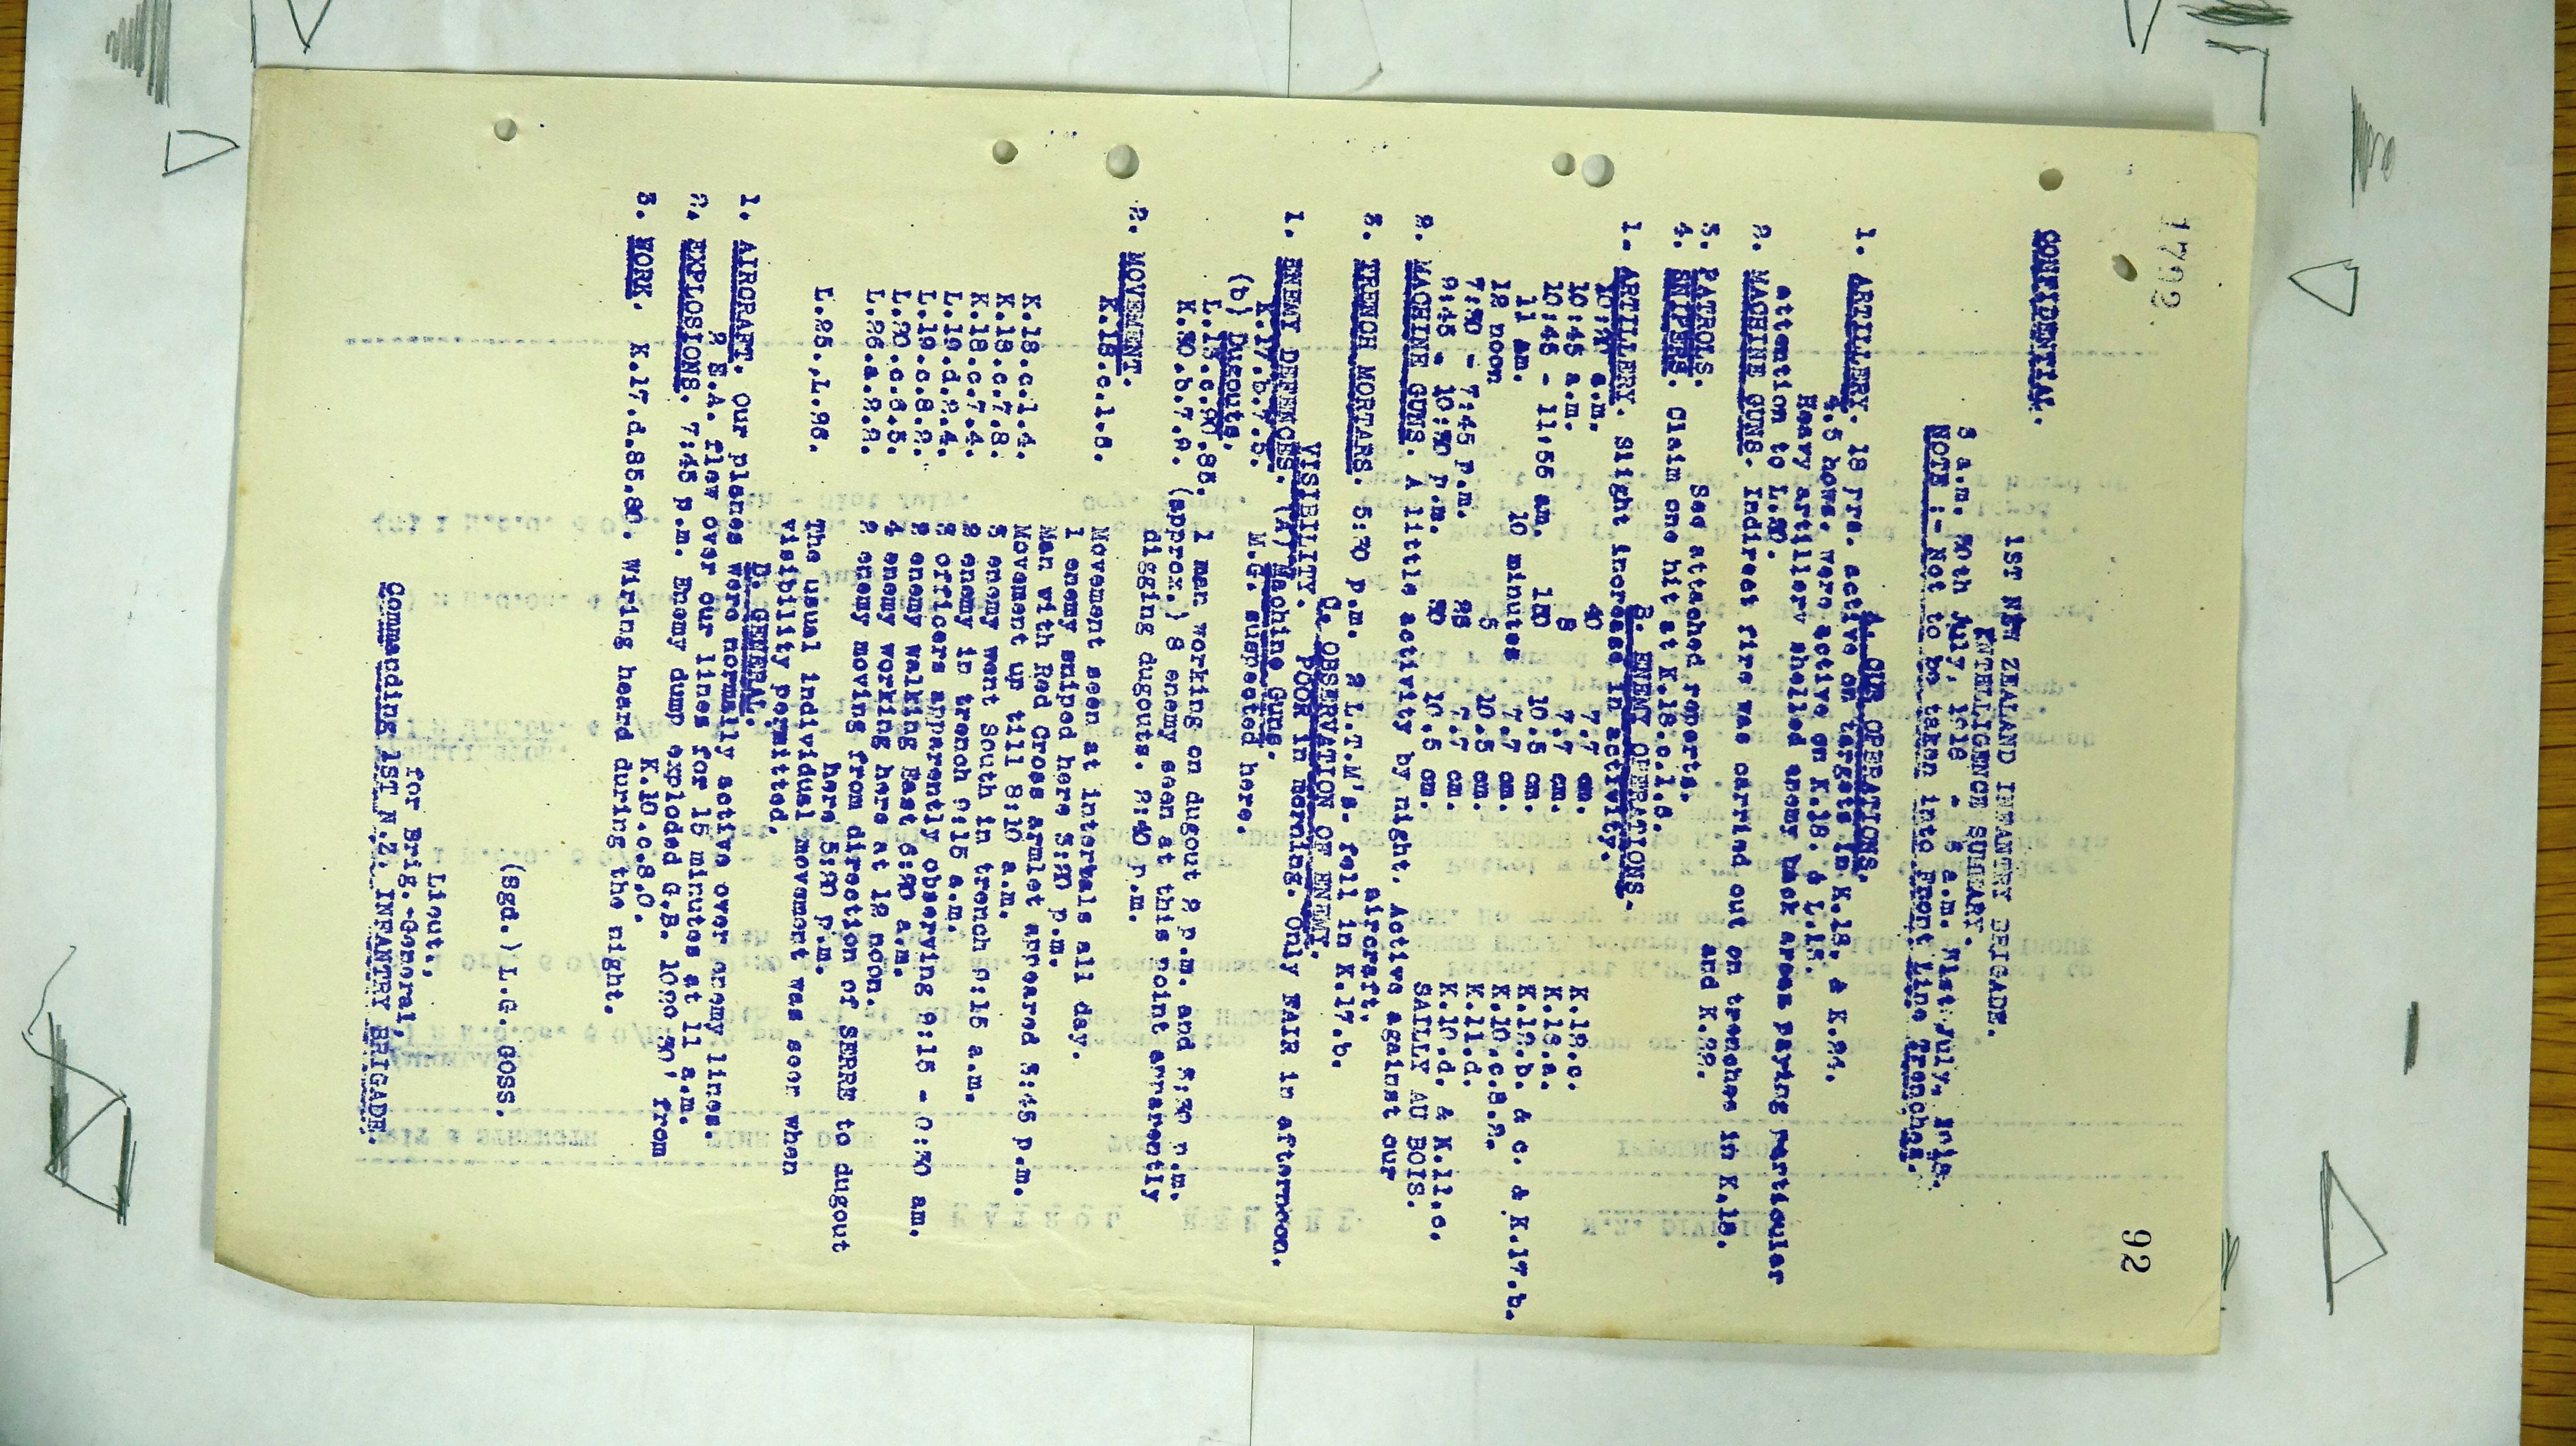 1702
92
CONFIDENTIAL.
1ST NEW ZEALAND INFANTRY BRIGADE.
INTELLIGENCE SUMMARY.
5 a.m. 30th July, 1918 - 5 a.m. 31st July, 1918.
NOTE :- Not to be taken into Front Line Trenches.
A. OUR OPERATIONS.
1. ARTILLERY. 18 prs. active on targets in K.18. & K.24.
4.5 hows. were active on K.18. & L.13.
Heavy artillery shelled enemy back areas paying particular
attention to L.20.
2. MACHINE GUNS. Indirect fire was carried out on trenches in K.18.
and K.22.
3. PATROLS. See attached reports.
4. SNIPERS. Claim one hit at K.18.c.1.6.
B. ENEMY OPERATIONS.
1. ARTILLERY. Slight increase in activity.
a.m. 40 7.7 cm. K.12.c.
10:45 a.m. 8 7.7 cm. K.18.a.
10:45 - 11:56 am. 10.5 cm. K.12.b. & c. & K.17.b.
11 am. 10 minutes 7.7 cm. K.10.c.8.2.
12 noon 5 10.5 cm. K.11.d.
7:30 - 7:45 p.m. 7.7 cm. K.10.d. & K.11.c.
9:45 - 10:30 p.m. 10.5 cm. SAILLY AU BOIS.
2. MACHINE GUNS. A little activity by night. Active against our
aircraft.
3. TRENCH MORTARS. 5:30 p.m. 2 L.T.M's. fell in K.17.b.
C. OBSERVATION OF ENEMY.
VISIBILITY. POOR in morning. Only FAIR in afternoon.
1. ENEMY DEFENCES. (A) Machine Guns.
K.17.b.7.5. M.G. suspected here.
(b) Dugouts.
L.13.c.20.85. 1 man working on dugout 2 p.m. and 3:30 p.m.
K.30.b.7.9. (approx.) 8 enemy seen at this point apparently
digging dugouts. 2:40 p.m.
2. MOVEMENT.
K.18.c.1.6. Movement seen at intervals all day.
1 enemy sniped here 3:20 p.m.
Man with Red Cross armlet appeared 3:45 p.m.
K.18.c.1.4. Movement up till 8:10 a.m.
K.18.c.7.8. 3 enemy went South in trench 9:15 a.m.
K.18.c.7.4. 2 enemy in trench 9:15 a.m.
L.19.d.2.4. officers apparently observing 9:15 - 9:30 am.
L.19.c.8.2. 2 enemy walking East 6:20 a.m.
L.20.c.6.5. 4 enemy working here at 12 noon.
L.26.a.2.2. 2 enemy moving from direction of SERRE to dugout
here 5:20 p.m.
L.25.,L.26. The usual individual movement was seen when
visibility permitted.
D. GENERAL.
1. AIRCRAFT. Our planes were normally active over enemy lines.
2 E.A. flew over our lines for 15 minutes at 11 a.m.
2. EXPLOSIONS. 7:45 p.m. Enemy dump exploded G.B. from
K.10.c.8.0.
3. WORK. K.17.d.85.80. Wiring heard during the night.
(Sgd.) L.G. GOSS.
Lieut.,
for Brig.-General,
Commanding 1ST N.Z. INFANTRY BRIGADE.